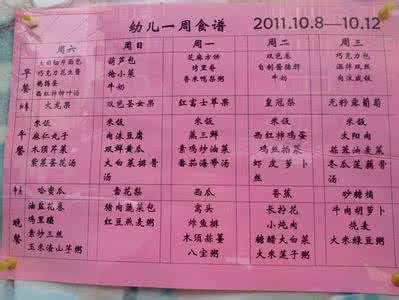 幼儿一周食谱 2011.10.8—10.12
周六 周日 周一 周二 周三
早餐
火腿切片面包
巧克力花生酱
鹌鹑蛋
西红柿柿叶汤
葫芦包
炝小菜
牛奶
芝麻方饼
烤里脊
香米鸭梨粥
双色卷
自制酱猪肝
牛奶
巧克力包
温拌双丝
肉沫咸饭
火龙果 双色圣女果 红富士苹果 皇冠梨 无籽露葡萄
午餐
米饭
麻仁丸子
木须芹菜
紫菜蛋花汤
米饭
肉沫豆腐
双鲜黄瓜
大白菜排骨汤
米饭
蒸三鲜
素鸡炒油菜
番茄海带汤
米饭
西红柿鸡蛋
鸡丝拍菜
虾皮萝卜丝
米饭
太阳肉
蒜茸油麦菜
冬瓜莲藕骨汤
哈蜜瓜 雪花梨 西瓜 香蕉 砂糖橘
晚餐
油盐花卷
鸡里蹦
素炒三丝
玉米渣山芋粥
猪肉蔬菜包
红豆燕麦粥
窝头
炸鱼排
木须蒜薹
八宝粥
长拧花
小炖肉
糖醋大白菜
大米莲子粥
牛肉胡萝卜
烧麦
大米绿豆粥